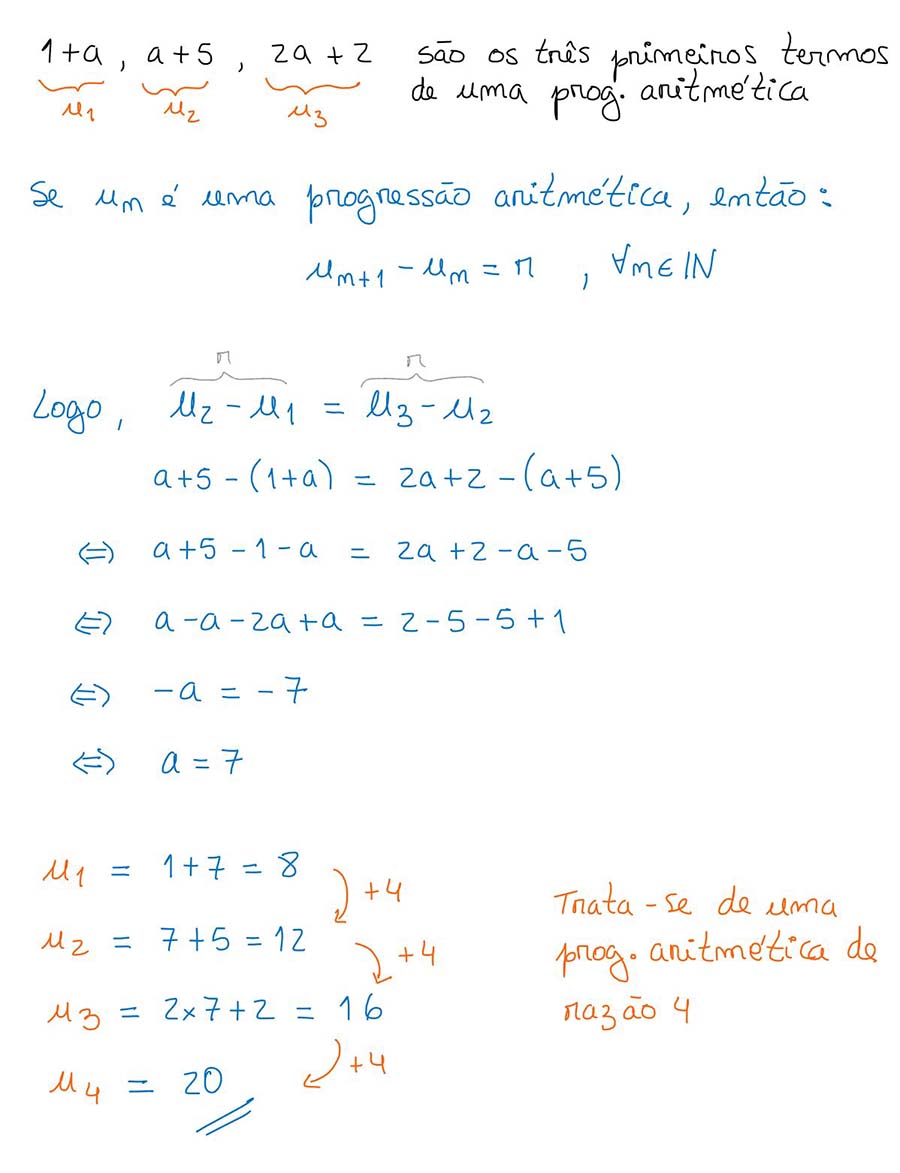 1+a , a+5 , 2a+2 são os três primeiros termos
u1 u2 u3 de uma prog. aritmética
Se un é uma progressão aritmética, então:
un+1 - un = r , ∀n∈IN
r r
Logo, u2 - u1 = u3 - u2
a+5-(1+a) = 2a+2-(a+5)
⇔ a+5-1-a = 2a+2-a-5
⇔ a-a-2a+a = 2-5-5+1
⇔ -a = -7
⇔ a = 7
u1 = 1+7 = 8
+4
u2 = 7+5 = 12
+4
u3 = 2×7+2 = 16
+4
u4 = 20
Trata-se de uma
prog. aritmética de
razão 4